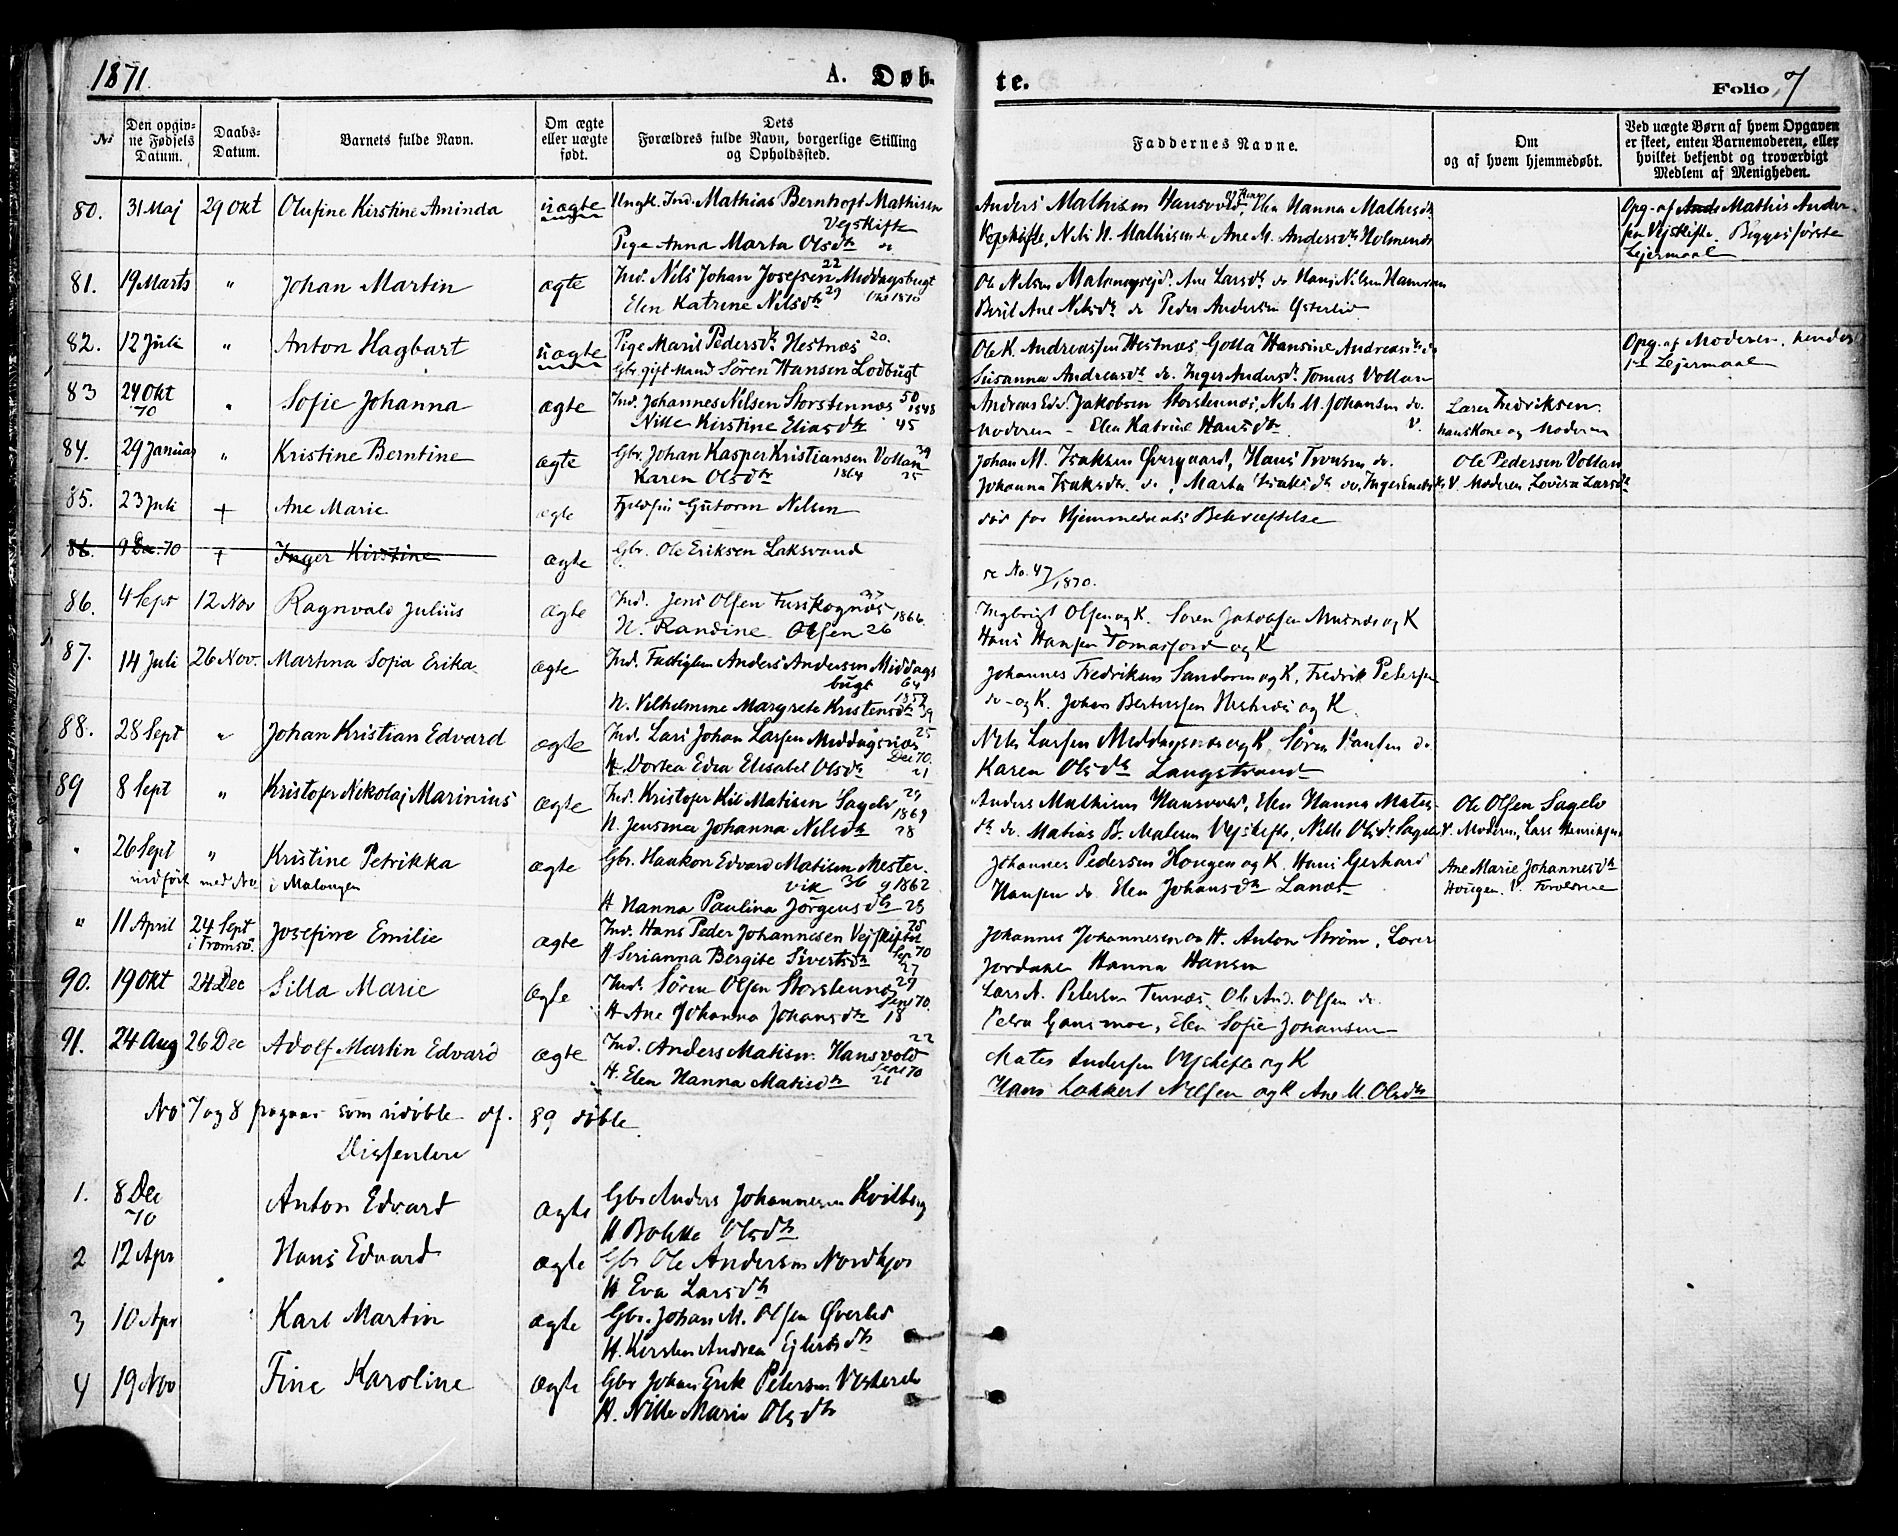 1871.
A. Døb-
te.
Folio 7
No
Den opgiv-
ne Fødsels
Datum.
Daabs-
Datum.
Barnets fulde Navn.
Om ægte
eller uægte
født.
Dets
Forældres fulde Navn, borgerlige Stilling
og Opholdssted.
Faddernes Navne.
Om
og af hvem hjemmedøbt.
Ved uægte Børn af hvem Opgaven
er skeet, enten Barnemoderen, eller
hvilket bekjendt og troværdigt
Medlem af Menigheden.
80. 31 Maj 29 Okt Olufine Kirstine Aminda uægte Ungk. Ind. Mathias Bernhoft Mathisen
Vejskifte
Pige Anna Marta Olsdtr
Anders Mathisen Hansvold, Elen Hanna Mathisdtr
Vejskifte, Nels N. Mathisen do Ane M. Andersdtr Holmenes
Opg. af Mathis Ander-
sen Vejskifte. Begges første
Lejermaal
81. 19 Marts " Johan Martin ægte Ind. Nils Johan Josefsen 22 Middagsbugt
Elen Katrine Nelsdtr 29 Okt 1870
Ole Nelsen Malangsejd. Ane Larsdtr do Hans Nilsen
Beril Ane Nelsdtr do Peder Andersen Østerlid
82. 12 Juli " Anton Hagbart uægte Pige Maril Pedersdtr Hestnæs 20.
Gbr. gift Mand Sören Hansen Lodbugt
Ole K. Andreassen Hestnæs, Golla Hansine Andreasdtr do
Susanna Andreasdtr do. Inger Andersdtr Tomas Vollan
Opg. af Moderen, hendes
1ste Lejermaal
83 24 Okt
70 " Sofie Johanna ægte Ind. Johannes Nilsen Storstennæs 50
1848
Nille Kirstine Eliasdtr 45
Andreas Edv. Jakobsen Storstennæs, Nels M. Johansen do.
Moderen - Elen Katrine Hansdtr
Lærer Fredriksen.
hans Kone og Moderen
84. 29 Januar " Kristine Berntine ægte Gbr. Johan Kasper Kristiansen Vollan 39
Karen Olsdtr 1864 25
Johan M. Isaksen Øvergaard, Hans do.
Johanna Isaksdtr do, Marta Isaksdtr do,
Ole Pedersen Vollan
V. Moderen, Lovisa Larsdtr
85. 23 Juli + Ane Marie ægte Gutorm Nilsen
död for Hjemmedaabs Bekræftelse
86. 9 Dec. 70 + Inger Kirstine ægte Gbr. Ole Eriksen Laksvand
se No. 47/1870.
86. 4 Sept 12 Nov Ragnvald Julius ægte Ind. Jens Olsen 1866.
H. Randine Olsen 26
Ingbrigt Olsen og K. Søren Jakobsen og K
Hans Hansen Tomasjord og K
87. 14 Juli 26 Nov. Martina Sofia Erika ægte Ind. Anders Andersen Middags
bugt 64
1859
H. Vilhelmine Margrete Kristensdtr 39
Johannes Fredriksen Sandøren og K, Fredrik Petersen
do og K. Johan Bertussen Hestnæs og K.
88. 28 Sept " Johan Kristian Edvard ægte Ind. Lars Johan Larsen Middagsnæs 25
Dec 70.
H Dortea Edea Elisabet Olsdtr 21
Nels Larsen Middagsnæs og K, Søren Hansen do.
Karen Olsdtr Langstrand
89 8 Sept " Kristofer Nikolaj Marinius ægte Ind. Kristofer Kil Matisen Sagelv 29
1869
H. Jensine Johanna Nilsdtr 28
Anders Mathisen Hansvold, Elen Hanna Matis-
dtr do. Matias B. Matisen Vejskifte, Nille Olsdtr Sagelv
Ole Olsen Sagelv
V. Moderen, Lars Henriksen
" 26 Sept
indført " med No. Kristine Petrikka
i Malangen ægte Gbr. Haakon Edvard Matisen Mester-
vik 36 g 1862
H Hanna Paulina Jörgensdtr 28
Johannes Pedersen Hougen og K. Hans Gerhard
Hansen do Elen Johansdtr Lanæs
Ane Marie Johannesdtr
Hougen. V. Forældrene
" 11 April 24 Sept
i Tromsö Josefine Emilie ægte Ind. Hans Peder Johannesen Vejskiftet 28
Sep 70
H Serianna Bergite Sivertsdtr 27
Johannes Johannesen og H. Anton Strøm, Lærer
Jordahl Hanna Hansen
90. 19 Okt 24 Dec Silla Marie ægte Ind. Søren Olsen Storstennæs 29
Sept 70.
H Ane Johanna Johansdtr 18
Lars A. Petersen Tennæs, Ole And. Olsen do.
Petra Gansmoe, Elen Sofie Johansen
91. 24 Aug 26 Dec Adolf Martin Edvard ægte Ind. Anders Matisen Hansvold 22
Sept 70
H. Elen Hanna Matisdtr 21
Matis Andersen Vejskifte og K
Hans Lokkert Nilsen og K Ane M. Olsdtr
No 7 og 8 fragaar som udöbte df. 89 döbte
Dissentere
1. 8 Dec
70 Anton Edvard ægte Gbr Anders Johannesen Kvitberg
H Bolette Olsdtr
2 12 Apr Hans Edvard ægte Gbr Ole Andersen Nordkjos
H Eva Larsdtr
3 10 Apr Karl Martin ægte Gbr. Johan M. Olsen Øverlid
H. Kirsten Andrea Eglertsdtr
4 19 Nov Fine Karoline ægte Gbr Johan Erik Petersen
H. Nille Marie Olsdtr